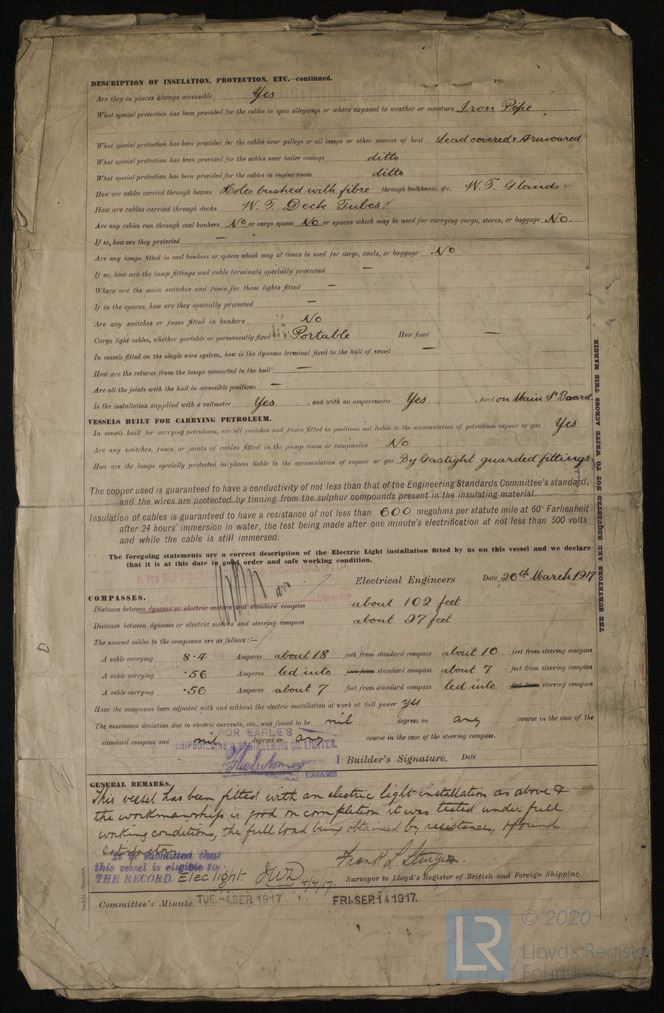 DESCRIPTION OF INSULATION, PROTECTION, ETC.—continued.
Are they in places always accessible Yes
What special protection has been provided for the cables in open alleyways or where exposed to weather or moisture Iron Pipe
What special protection has been provided for the cables near galleys or oil lamps or other sources of heat Lead covered & Armoured
What special protection has been provided for the cables near boiler casings ditto
What special protection has been provided for the cables in engine room ditto
How are cables carried through beams Holes bushed with fibre through bulkheads, &c. W.T. Glands
How are cables carried through decks W.T. Deck Tubes.
Are any cables run through coal bunkers No or cargo spaces No or spaces which may be used for carrying cargo, stores, or baggage No.
If so, how are they protected —
Are any lamps fitted in coal bunkers or spaces which may at times be used for cargo, coals, or baggage No
If so, how are the lamp fittings and cable terminals specially protected —
Where are the main switches and fuses for these lights fitted —
If in the spaces, how are they specially protected —
Are any switches or fuses fitted in bunkers No
Cargo light cables, whether portable or permanently fixed Portable How fixed —
In vessels fitted on the single wire system, how is the dynamo terminal fixed to the hull of vessel —
How are the returns from the lamps connected to the hull —
Are all the joints with the hull in accessible positions —
Is the installation supplied with a voltmeter Yes, and with an amperemeter Yes, fixed on Main S. Board.
VESSELS BUILT FOR CARRYING PETROLEUM.
In vessels built for carrying petroleum, are all switches and fuses fitted in positions not liable to the accumulation of petroleum vapour or gas Yes
Are any switches, fuses, or joints of cables fitted in the pump room or companion No
How are the lamps specially protected in places liable to the accumulation of vapour or gas By Gastight guarded fittings
The copper used is guaranteed to have a conductivity of not less than that of the Engineering Standards Committee's standard,
and the wires are protected by tinning from the sulphur compounds present in the insulating material.
Insulation of cables is guaranteed to have a resistance of not less than 600 megohms per statute mile at 60° Farhenheit
after 24 hours' immersion in water, the test being made after one minute's electrification at not less than 500 volts
and while the cable is still immersed.
The foregoing statements are a correct description of the Electric Light installation fitted by us on this vessel and we declare
that it is at this date in good order and safe working condition.
Electrical Engineers Date 20th March 1917
Director
COMPASSES.
Distance between dynamo or electric motors and standard compass about 102 feet
Distance between dynamo or electric motors and steering compass about 97 feet
The nearest cables to the compasses are as follows:—
A cable carrying 8.4 Amperes about 18 feet from standard compass about 10 feet from steering compass
A cable carrying .56 Amperes led into feet from standard compass about 7 feet from steering compass
A cable carrying .56 Amperes about 7 feet from standard compass led into feet from steering compass
Have the compasses been adjusted with and without the electric installation at work at full power yes
The maximum deviation due to electric currents, etc., was found to be nil degrees on any course in the case of the
standard compass and nil degrees on any course in the case of the steering compass.
FOR EARLE'S
SHIPBUILDING & ENGINEERING CO. LIMITED.
MANAGER
Builder's Signature. Date
GENERAL REMARKS.
This vessel has been fitted with an electric light installation as above &
the workmanship is good on completion it was tested under full
working conditions, the full load being obtained by resistances, & found
satisfactory
It is submitted that
this vessel is eligible for
THE RECORD. Elec light.
Surveyor to Lloyd's Register of British and Foreign Shipping.
Committee's Minute TUE-4 SEP 1917 FRI.SEP 14 1917.
THE SURVEYORS ARE REQUESTED NOT TO WRITE ACROSS THIS MARGIN.
LR © 2020
Lloyd's Register
Foundation